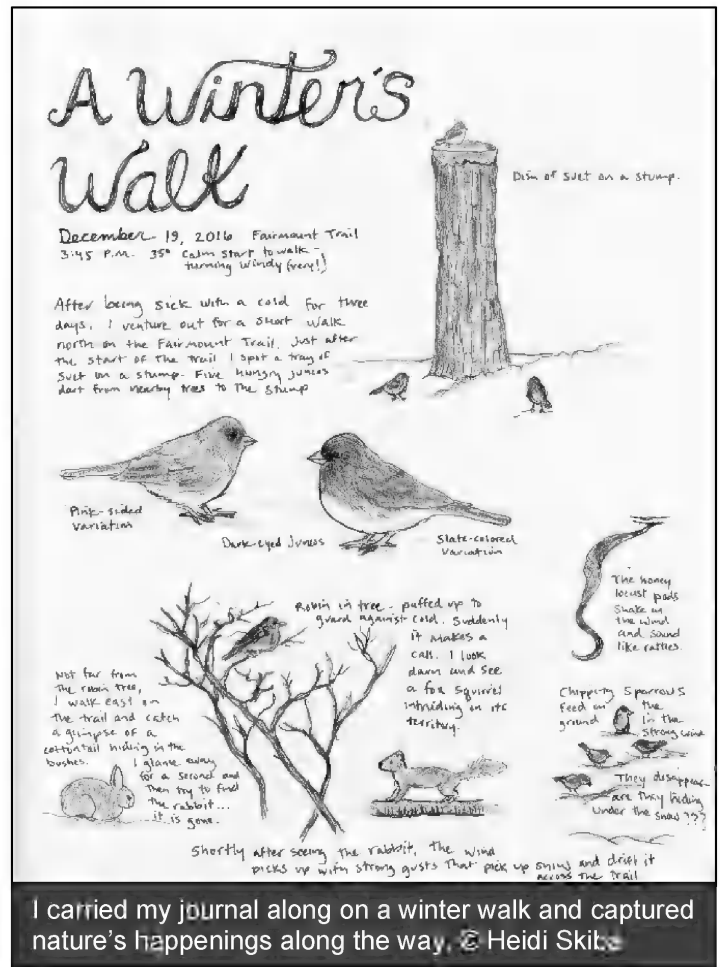 A Winter's
Walk
December 19, 2016 Fairmount Trail
3:45 P.M. 35° Calm start to walk -
turning windy (very!)
Dish of suet on a stump.
After being sick with a cold for three
days, I venture out for a short walk
north on the Fairmount Trail. Just after
the start of the trail I spot a tray of
suet on a stump. Five hungry juncos
dart from nearby tres to the stump
Pink-sided
variation
Dark-eyed Juncos
Slate-colored
variation
The honey
locust pods
shake in
the wind
and sound
like rattles.
Robin in tree - puffed up to
guard against cold. Suddenly
it makes a
call. I look
down and see
a fox squirrel
intruding on its
territory.
Not far from
the robin tree,
I walk east on
the trail and catch
a glimpse of a
cottontail hiding in the
bushes. I glance away
for a second and
then try to find
the rabbit...
it is gone.
Chipping Sparrows
feed on the
ground in the
strong wind
They disappear
are they hiding
under the snow???
Shortly after seeing the rabbit, the wind
picks up with strong gusts that pick up snow and drift it
across the trail
I carried my journal along on a winter walk and captured
nature's happenings along the way. © Heidi Skibe